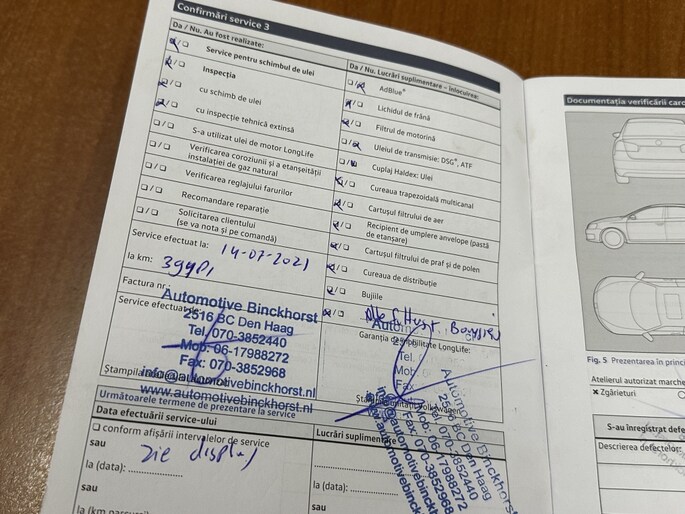 Confirmări service 3
Da / Nu. Au fost realizate:
Service pentru schimbul de ulei
Inspecția
cu schimb de ulei
cu inspecție tehnică extinsă
S-a utilizat ulei de motor LongLife
Verificarea coroziunii și a etanșeității
instalației de gaz natural
Verificarea reglajului farurilor
Recomandare reparație
Solicitarea clientului
(se va nota și pe comandă)
Service efectuat la: 14-07-2021
la km:
Factura nr.:
Service efectuat de
Automotive Binckhorst
2516 BC Den Haag
Tel. 070-3852440
Mob: 06-17988272
Fax: 070-3852968
info@automotivebinckhorst.nl
www.automotivebinckhorst.nl
Da / Nu. Lucrări suplimentare – înlocuirea:
AdBlue®
Lichidul de frână
Filtrul de motorină
Uleiul de transmisie: DSG®, ATF
Cuplaj Haldex: Ulei
Cureaua trapezoidală multicanal
Cartușul filtrului de aer
Recipient de umplere anvelope (pastă
de etanșare)
Cartușul filtrului de praf și de polen
Cureaua de distribuție
Bujiile
Garanția de mobilitate LongLife:
Automotive Binckhorst
2516 BC Den Haag
Tel. 070-3852440
Mob: 06-17988272
Fax: 070-3852968
Următoarele termene de prezentare la service
Data efectuării service-ului
conform afișării intervalelor de service
sau zie display
la (data):
sau
la (km
Lucrări suplim
la (data):
sau
Documentația verificării caro
Fig. 5 Prezentarea în princi
Atelierul autorizat marche
× Zgârieturi
S-au înregistrat defe
Descrierea defectelor: